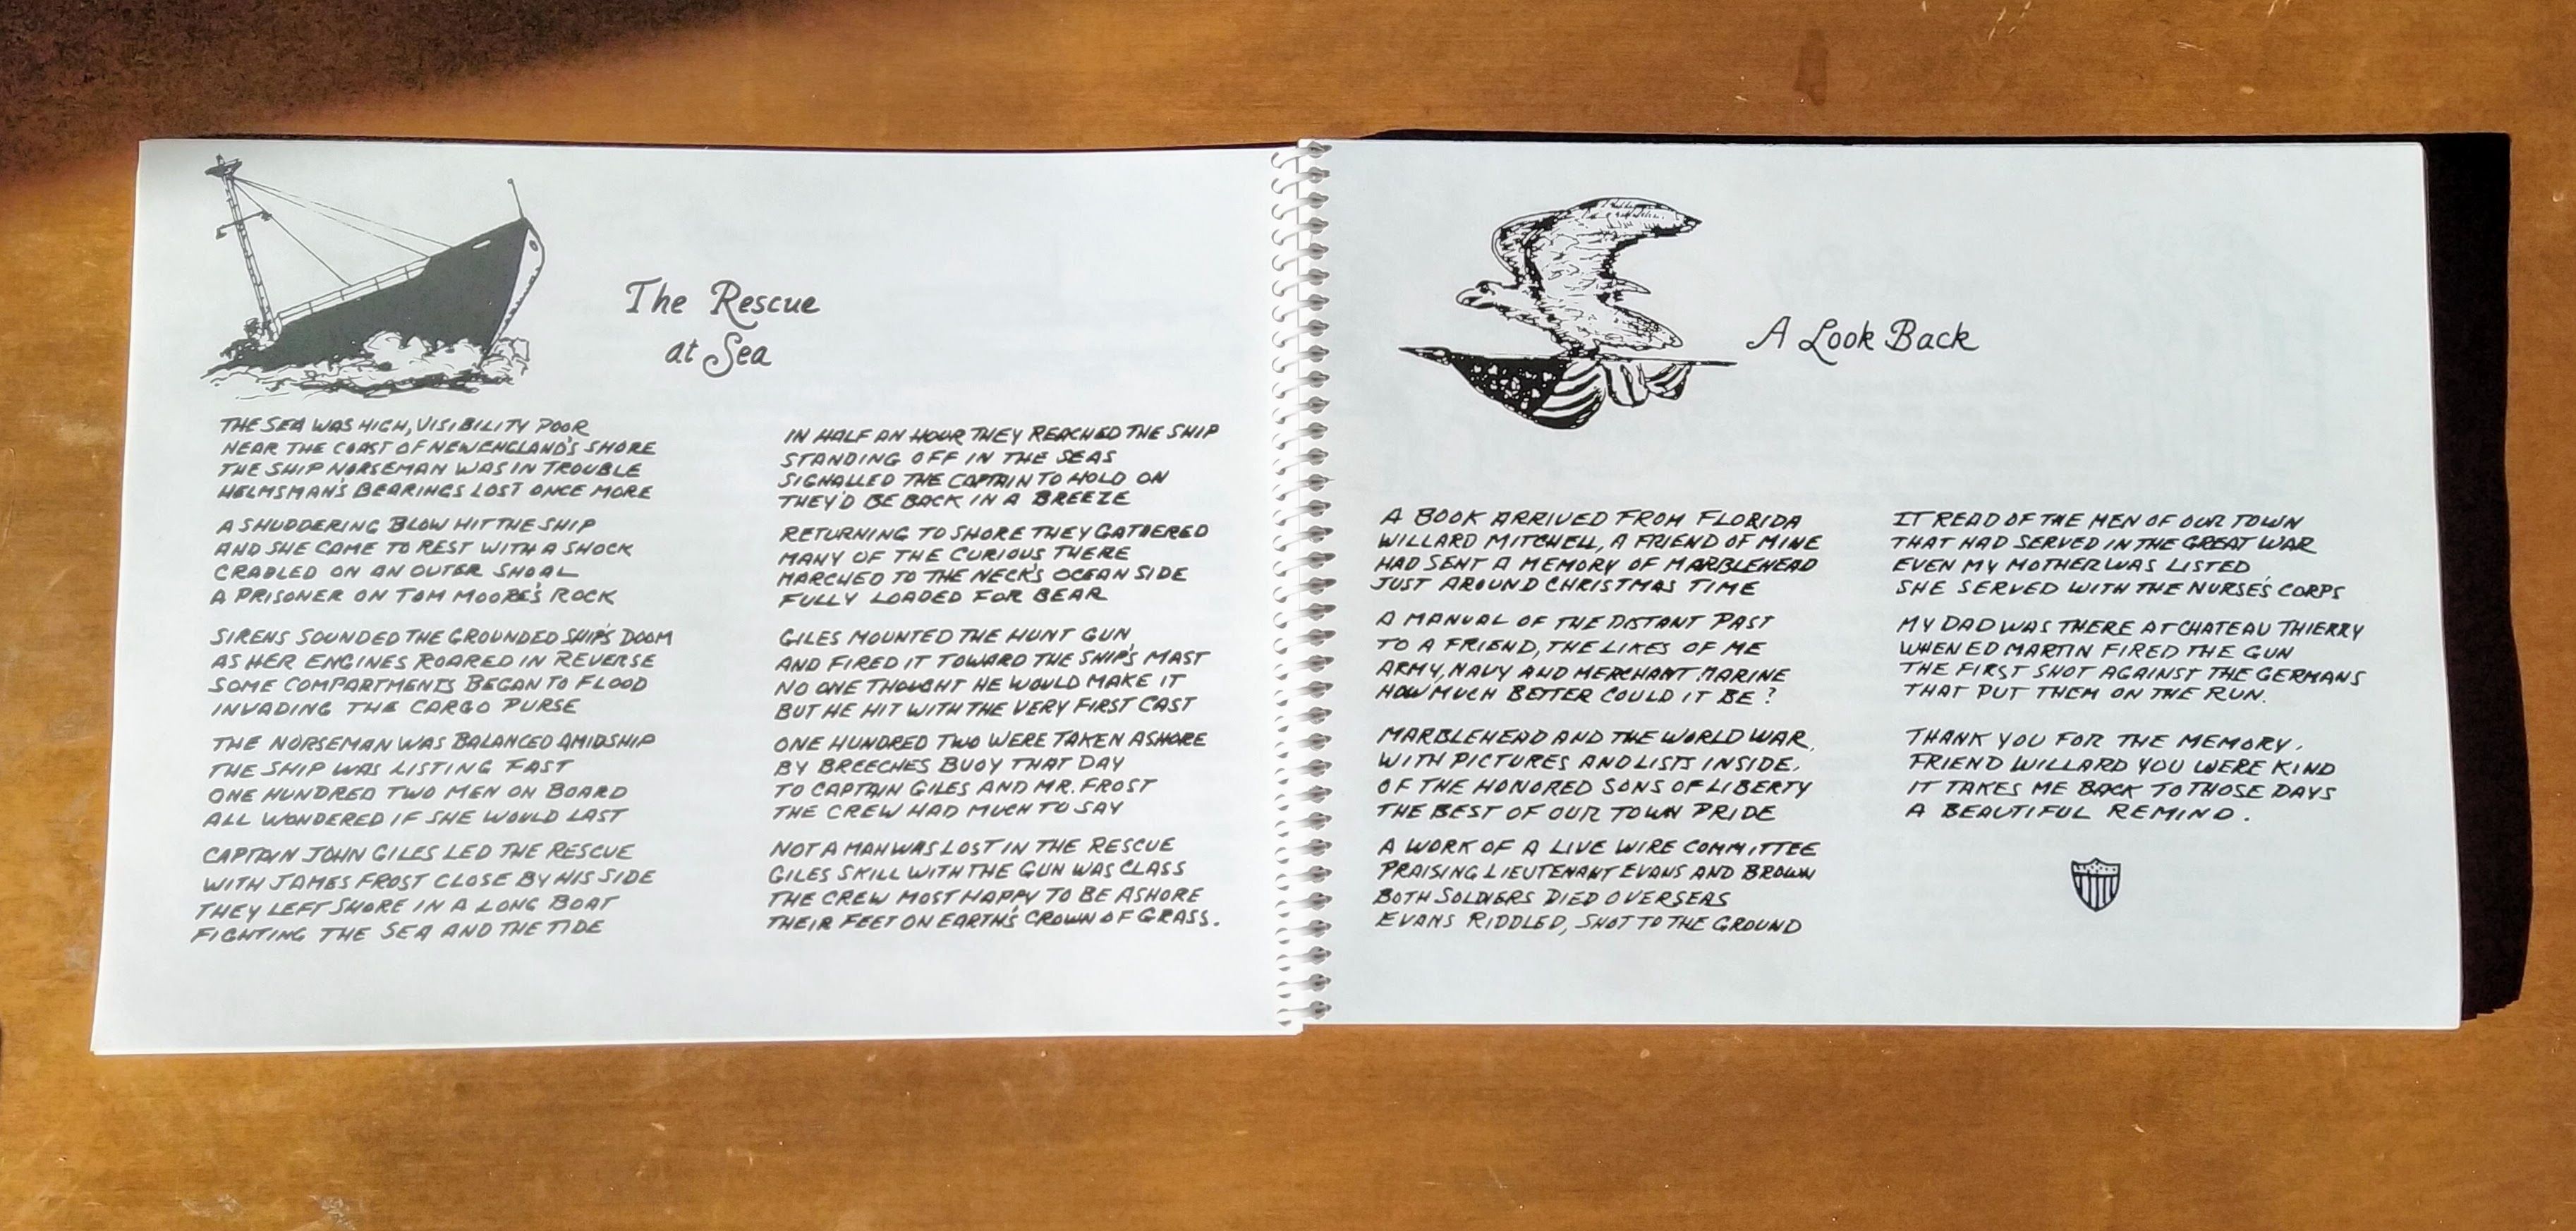 The Rescue
at Sea
THE SEA WAS HIGH, VISIBILITY POOR
NEAR THE COAST OF NEW ENGLAND'S SHORE
THE SHIP NORSEMAN WAS IN TROUBLE
HELMSMAN'S BEARINGS LOST ONCE MORE
A SHUDDERING BLOW HIT THE SHIP
AND SHE CAME TO REST WITH A SHOCK
CRADLED ON AN OUTER SHOAL
A PRISONER ON TOM MOORE'S ROCK
SIRENS SOUNDED THE GROUNDED SHIP'S DOOM
AS HER ENGINES ROARED IN REVERSE
SOME COMPARTMENTS BEGAN TO FLOOD
INVADING THE CARGO PURSE
THE NORSEMAN WAS BALANCED AMIDSHIP
THE SHIP WAS LISTING FAST
ONE HUNDRED TWO MEN ON BOARD
ALL WONDERED IF SHE WOULD LAST
CAPTAIN JOHN GILES LED THE RESCUE
WITH JAMES FROST CLOSE BY HIS SIDE
THEY LEFT SHORE IN A LONG BOAT
FIGHTING THE SEA AND THE TIDE
IN HALF AN HOUR THEY REACHED THE SHIP
STANDING OFF IN THE SEAS
SIGNALLED THE CAPTAIN TO HOLD ON
THEY'D BE BACK IN A BREEZE
RETURNING TO SHORE THEY GATHERED
MANY OF THE CURIOUS THERE
MARCHED TO THE NECK'S OCEAN SIDE
FULLY LOADED FOR BEAR
GILES MOUNTED THE HUNT GUN
AND FIRED IT TOWARD THE SHIP'S MAST
NO ONE THOUGHT HE WOULD MAKE IT
BUT HE HIT WITH THE VERY FIRST CAST
ONE HUNDRED TWO WERE TAKEN ASHORE
BY BREECHES BUOY THAT DAY
TO CAPTAIN GILES AND MR. FROST
THE CREW HAD MUCH TO SAY
NOT A MAN WAS LOST IN THE RESCUE
GILES SKILL WITH THE GUN WAS CLASS
THE CREW MOST HAPPY TO BE ASHORE
THEIR FEET ON EARTH'S CROWN OF GRASS.
A Look Back
A BOOK ARRIVED FROM FLORIDA
WILLARD MITCHELL, A FRIEND OF MINE
HAD SENT A MEMORY OF MARBLEHEAD
JUST AROUND CHRISTMAS TIME
A MANUAL OF THE DISTANT PAST
TO A FRIEND, THE LIKES OF ME
ARMY, NAVY AND MERCHANT MARINE
HOW MUCH BETTER COULD IT BE?
MARBLEHEAD AND THE WORLD WAR,
WITH PICTURES AND LISTS INSIDE.
OF THE HONORED SONS OF LIBERTY
THE BEST OF OUR TOWN PRIDE
A WORK OF A LIVE WIRE COMMITTEE
PRAISING LIEUTENANT EVANS AND BROWN
BOTH SOLDIERS DIED OVERSEAS
EVANS RIDDLED, SHOT TO THE GROUND
IT READ OF THE MEN OF OUR TOWN
THAT HAD SERVED IN THE GREAT WAR
EVEN MY MOTHER WAS LISTED
SHE SERVED WITH THE NURSE'S CORPS
MY DAD WAS THERE AT CHATEAU THIERRY
WHEN ED MARTIN FIRED THE GUN
THE FIRST SHOT AGAINST THE GERMANS
THAT PUT THEM ON THE RUN.
THANK YOU FOR THE MEMORY.
FRIEND WILLARD YOU WERE KIND
IT TAKES ME BACK TO THOSE DAYS
A BEAUTIFUL REMIND.